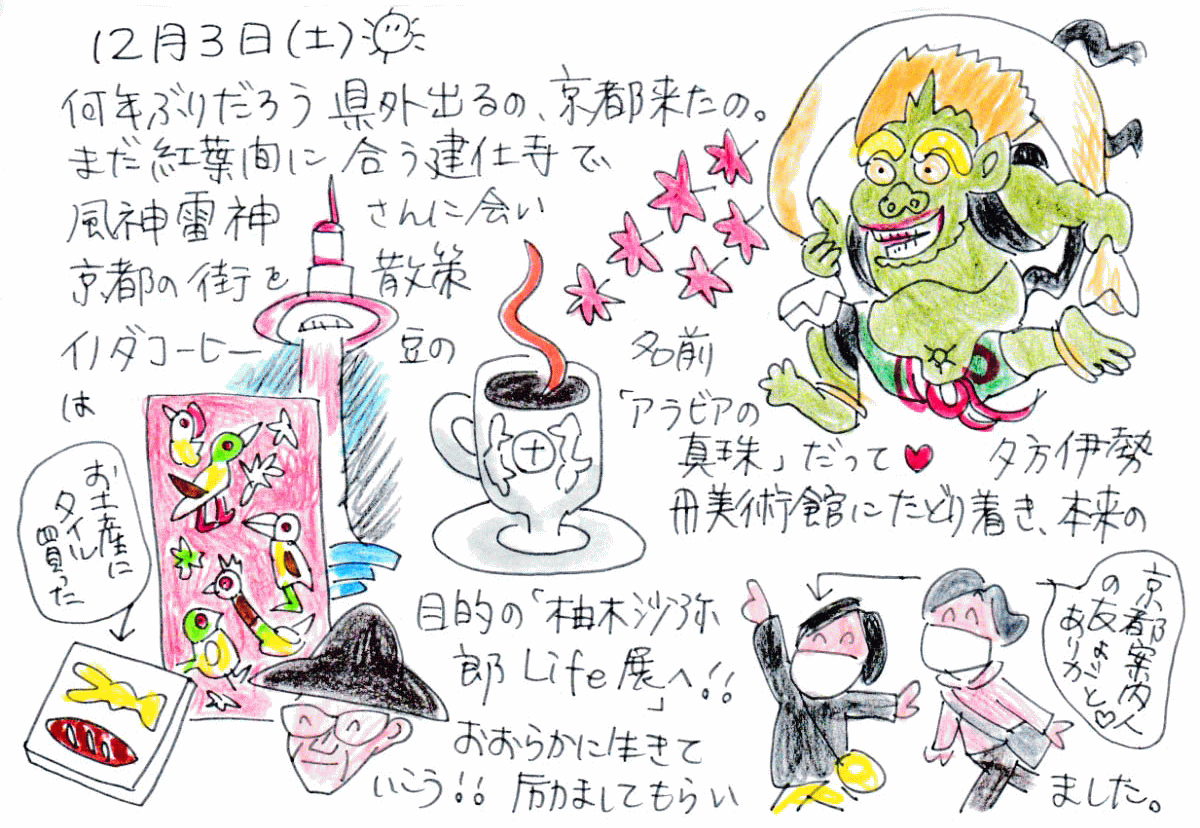 12月3日(土)
何年ぶりだろう 県外出るの、京都来たの。
まだ紅葉間に合う建仁寺で
風神雷神 さんに会い
京都の街を 散策
イノダコーヒー 豆の 名前
は 「アラビアの
真珠」だって♥ 夕方伊勢
丹美術館にたどり着き、本来の
目的の「柚木沙弥
郎Life展」へ!!
おおらかに生きて
いこう!! 励ましてもらい ました。
お土産に
タイル
買った
京都案内人
の友